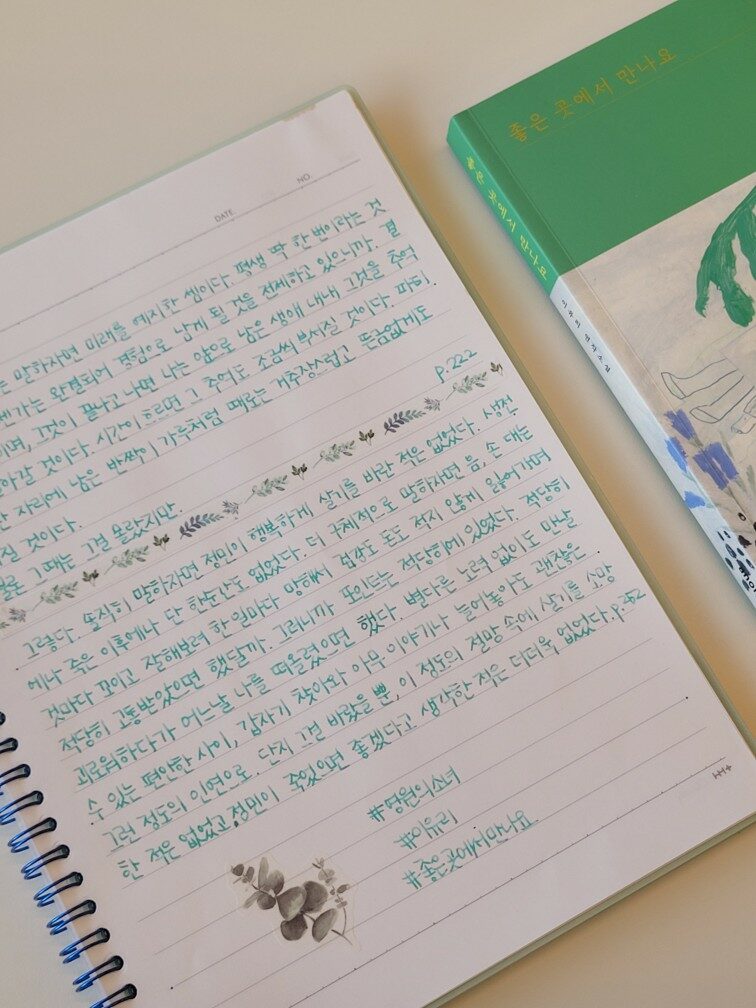 DATE.
NO.
는 말하자면 미래를 예지한 셈이다. 평생 딱 한 번이라는 것
젠가는 완결되어 경험으로 남게 될 것을 전제하고 있으니까. 결
이며, 그것이 끝나고 나면 나는 앞으로 남은 생애 내내 그것을 추억
살아갈 것이다. 시간이 흐르면 그 추억도 조금씩 부서질 것이다. 파티.
난 자리에 남은 반짝이 가루처럼 때로는 거추장스럽고 뜬금없게도
질 것이다.
론 그때는 그걸 몰랐지만.
p.222
그렇다. 솔직히 말하자면 정민이 행복하게 살기를 바란 적은 없었다. 생전
에나 죽은 이후에나 단 한순간도 없었다. 더 구체적으로 말하자면 음, 손 대는
것마다 꼬이고 잘해보려 한 일마다 망해서 건강도 돈도 적지 않게 잃어가며
적당히 고통받았으면 했달까. 그러니까 포인트는 적당히에 있었다. 적당히
괴로워하다가 어느날 나를 떠올렸으면 했다. 별다른 노력 없이도 만날
수 있는 편안한 사이, 갑자기 찾아와 아무 이야기나 늘어놓아도 괜찮은
그런 정도의 인연으로. 단지 그걸 바랐을 뿐, 이 정도의 절망 속에 살기를 소망
한 적은 없었고 정민이 죽었으면 좋겠다고 생각한 적은 더더욱 없었다. p.52
#영원의소녀
#이유리
#좋은곳에서만나요
좋은 곳에서 만나요
좋은 곳에서 만나요